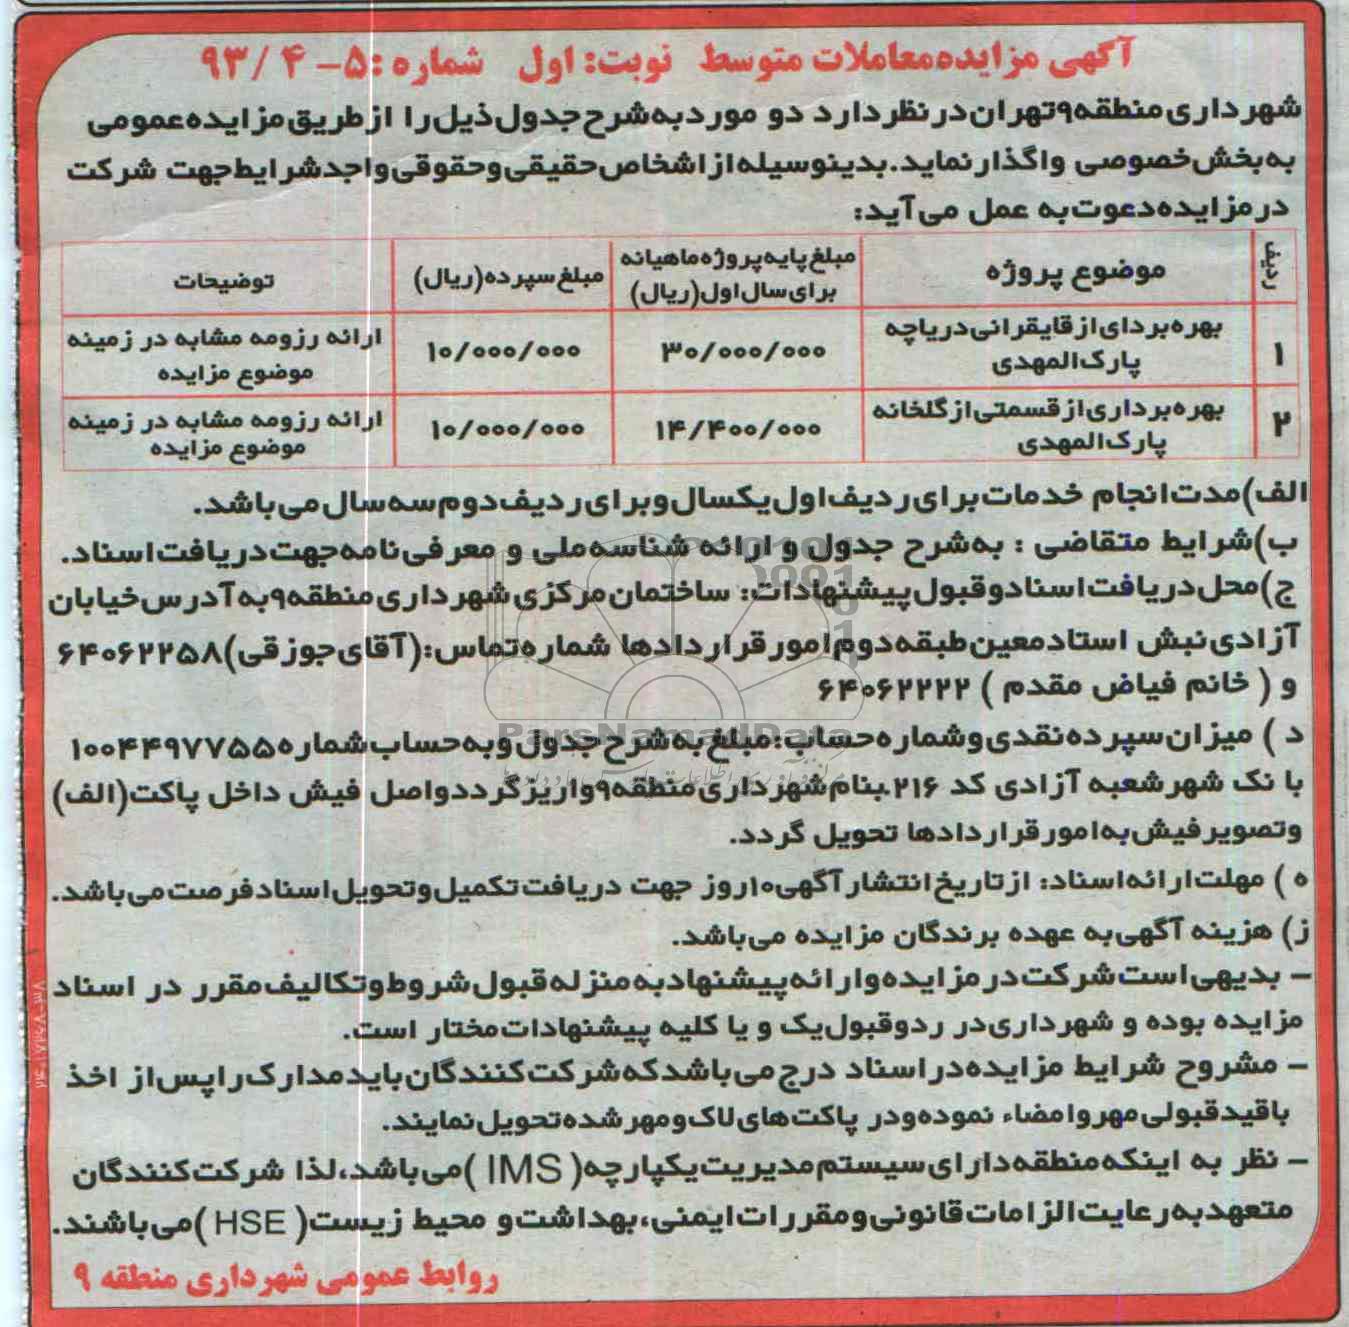 آگهی مزایده معاملات متوسط نوبت: اول شماره: ۵-۹۳/۴
شهرداری منطقه ۹ تهران در نظر دارد دو مورد به شرح جدول ذیل را از طریق مزایده عمومی
به بخش خصوصی واگذار نماید. بدینوسیله از اشخاص حقیقی و حقوقی واجد شرایط جهت شرکت
در مزایده دعوت به عمل می آید:
ردیف موضوع پروژه مبلغ پایه پروژه ماهیانه برای سال اول (ریال) مبلغ سپرده (ریال) توضیحات
۱ بهره بردای از قایقرانی دریاچه پارک المهدی ۳۰/۰۰۰/۰۰۰ ۱۰/۰۰۰/۰۰۰ ارائه رزومه مشابه در زمینه موضوع مزایده
۲ بهره برداری از قسمتی از گلخانه پارک المهدی ۱۴/۴۰۰/۰۰۰ ۱۰/۰۰۰/۰۰۰ ارائه رزومه مشابه در زمینه موضوع مزایده
الف) مدت انجام خدمات برای ردیف اول یکسال و برای ردیف دوم سه سال می باشد.
ب) شرایط متقاضی : به شرح جدول و ارائه شناسه ملی و معرفی نامه جهت دریافت اسناد.
ج) محل دریافت اسناد و قبول پیشنهادات: ساختمان مرکزی شهرداری منطقه ۹ به آدرس خیابان
آزادی نبش استاد معین طبقه دوم امور قراردادها شماره تماس: (آقای جوزقی) ۶۴۰۶۲۲۵۸
و ( خانم فیاض مقدم ) ۶۴۰۶۲۲۲۲
د ) میزان سپرده نقدی و شماره حساب: مبلغ به شرح جدول و به حساب شماره ۱۰۰۴۴۹۷۷۵۵
با نک شهر شعبه آزادی کد ۲۱۶ بنام شهرداری منطقه ۹ واریز گردد و اصل فیش داخل پاکت (الف)
و تصویر فیش به امور قراردادها تحویل گردد.
ه ) مهلت ارائه اسناد: از تاریخ انتشار آگهی ۱۰ روز جهت دریافت تکمیل و تحویل اسناد فرصت می باشد.
ز) هزینه آگهی به عهده برندگان مزایده می باشد.
– بدیهی است شرکت در مزایده و ارائه پیشنهاد به منزله قبول شروط و تکالیف مقرر در اسناد
مزایده بوده و شهرداری در رد و قبول یک و یا کلیه پیشنهادات مختار است.
– مشروح شرایط مزایده در اسناد درج می باشد که شرکت کنندگان باید مدارک را پس از اخذ
با قید قبولی مهر و امضاء نموده و در پاکت های لاک و مهر شده تحویل نمایند.
– نظر به اینکه منطقه دارای سیستم مدیریت یکپارچه (IMS) می باشد، لذا شرکت کنندگان
متعهد به رعایت الزامات قانونی و مقررات ایمنی، بهداشت و محیط زیست (HSE) می باشند.
روابط عمومی شهرداری منطقه ۹
ParsNamadData